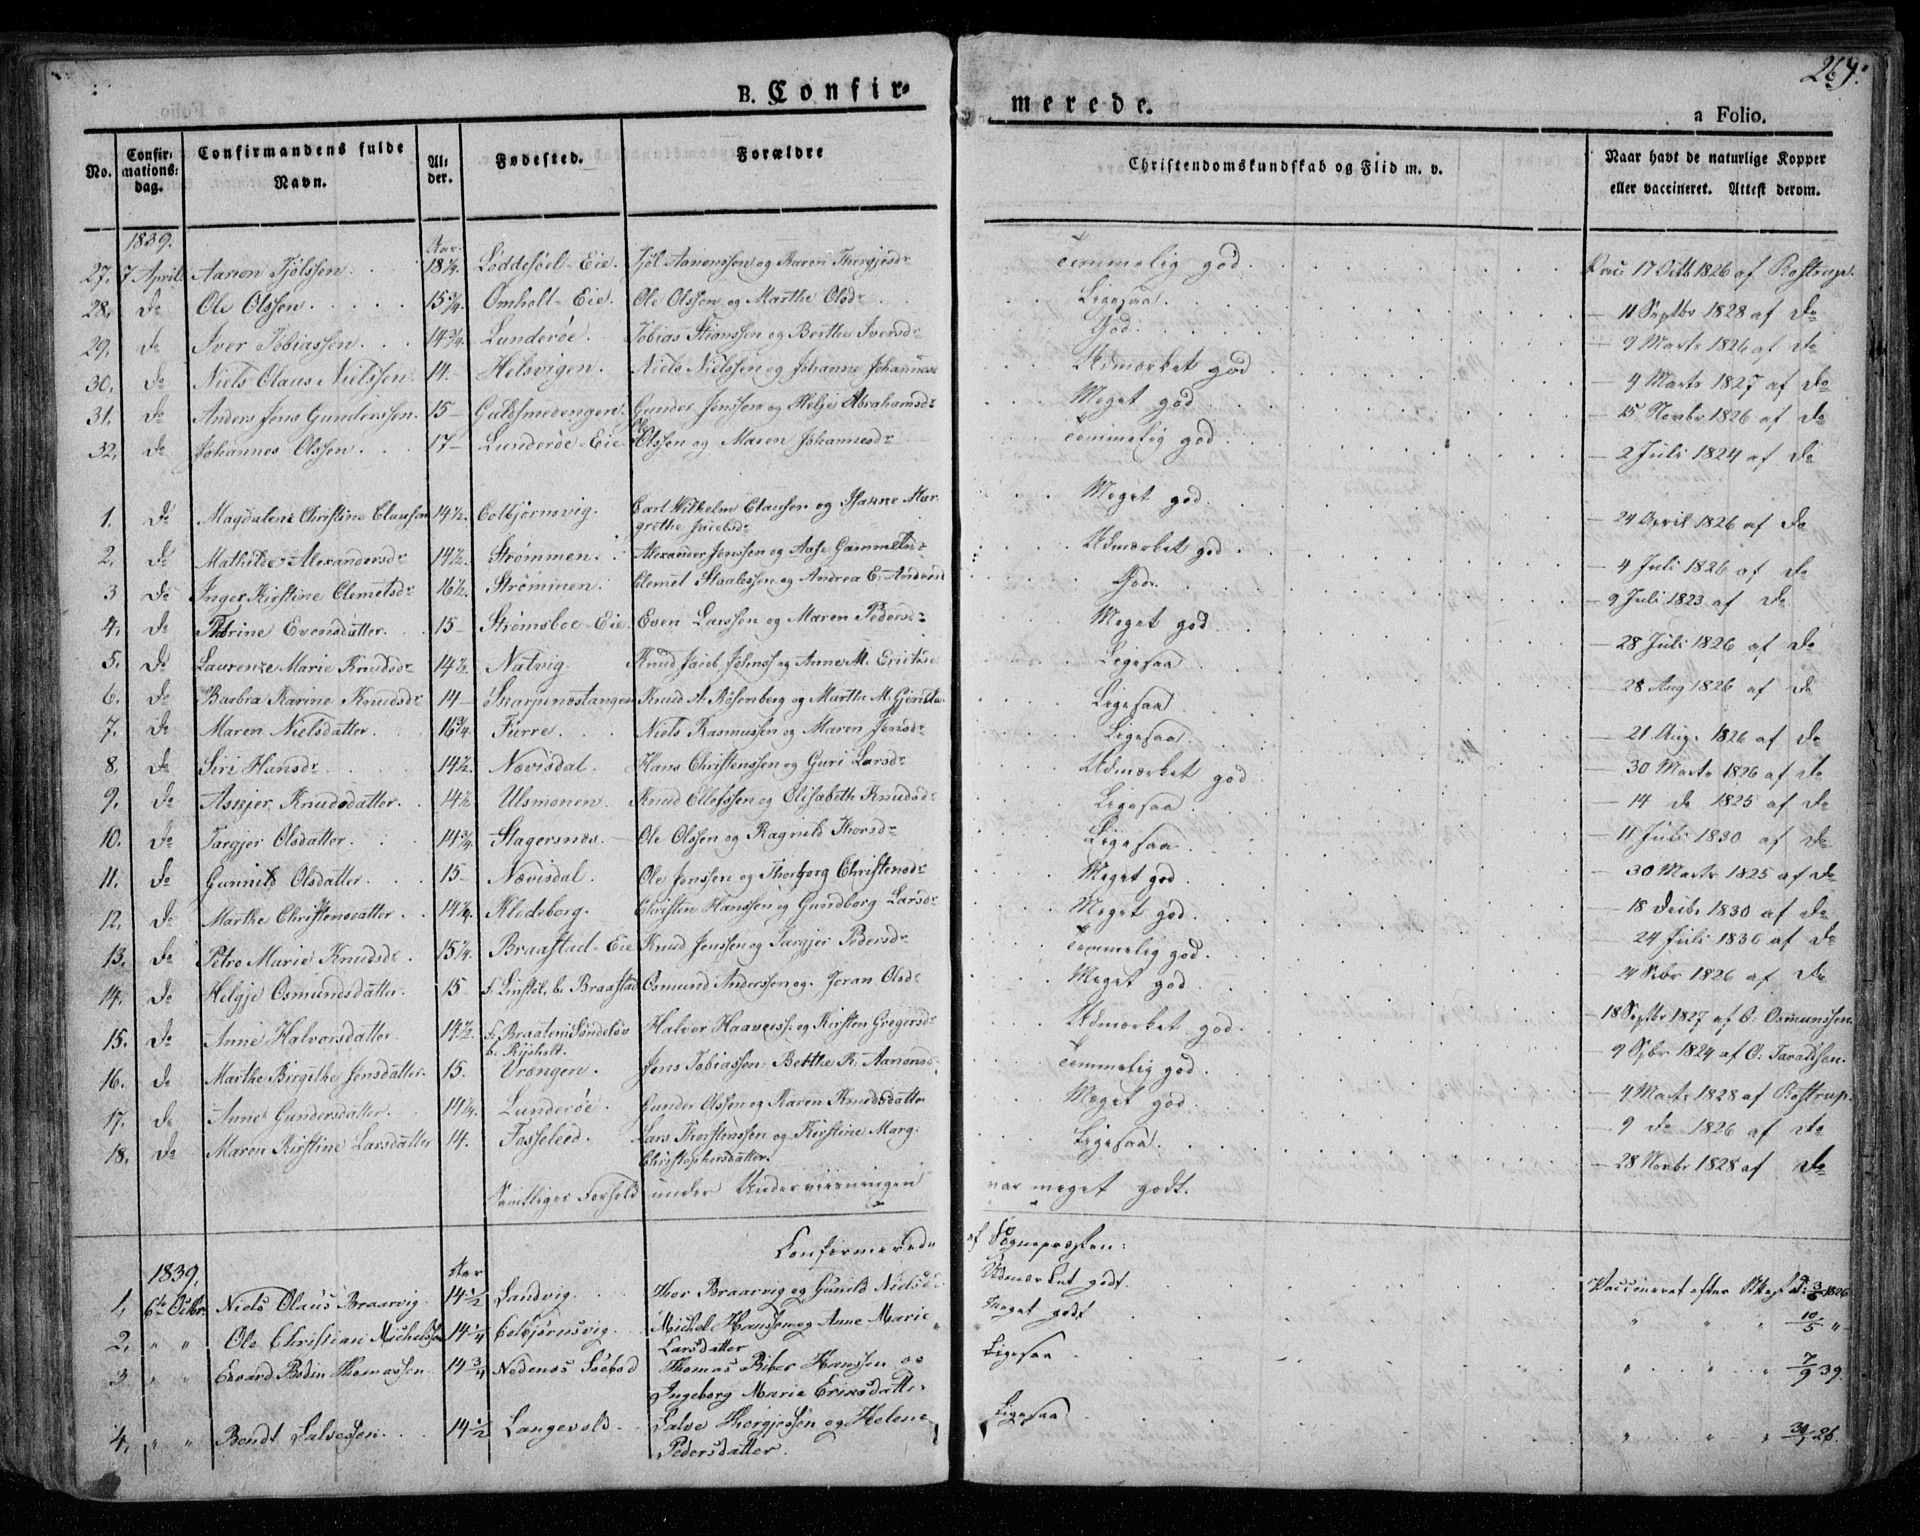 269.
B. Confir-
merede.
a Folio.
No. Confirmationsdag. Confirmandens fulde Navn. Alder. Fødested. Forældre Christendomskundskab og Flid m. v. Naar havt de naturlige Kopper eller vaccineret. Attest derom.
1839. Aar
27. 7 April Aanon Tjølssen 18 1/4. Løddesøel-Eie. Tjøl Aanonssen og Karen Thergjesdr Temmelig god. Vacc. 17 Octb 1826 af Rostrup.
28. do Ole Olssen 15 3/4. Omholt-Eie Ole Olssen og Marthe Olsdr Ligesaa. – 11 Septbr 1828 af do
29. do Iver Tobiassen 14 3/4. Lunderøe. Tobias Stianssen og Berthe Iversdr God. – 9 Marts 1826 af do
30. do Niels Olaus Nielssen 14. – Helsvigen. Niels Nielssen og Johanne Johannesd Udmærket god – 4 Marts 1827 af do
31. do Anders Jens Gunderssen. 15 – Guldsmedengen. Gunder Jenssen og Helje Abrahamsdr Meget god – 15 Novbr 1826 af do
32. do Johannes Olssen 17 – Lunderøe-Eie Ole Olssen og Maren Johannesdr Temmelig god – 2 Juli 1824 af do
1. do Magdalene Christine Clausen 14 1/2. Colbjørnsvig. Carl Wilhelm Clausen og Hanne Margrethe Jacobsdr Meget god – 24 April 1826 af do
2. do Mathilde Alexandersdr 14 1/2. Strømmen. Alexander Jenssen og Aase Gammelsdr Udmærket god – 4 Juli 1826 af do
3 do Inger Kirstine Clemetsdr 16 1/2. Strømmen. Clemet Staalessen og Andrea E. Andersd God. – 9 Juli 1823 af do
4. do Thrine Evensdatter. 15 – Strømsboe-Eie. Even Larssen og Maren Pedersdr Meget god – 28 Juli 1826 af do
5. do Laurenze Marie Knudsdr 14 1/2. Natvig. Knud Jacob Johnss og Anne M. Eriksd Ligesaa. – 28 Aug 1826 af do
6. do Barbra Karine Knudsdr 14 – Skarpnæstangen Knud A. Rosenberg og Marthe M. Ligesaa – 21 Aug. 1826 af do
7. do Maren Nielsdatter. 16 3/4. Furre. Niels Rasmussen og Maren Jensdr Ligesaa. – 30 Marts 1826 af do
8. do Siri Hansdr 14 1/2. Nævisdal. Hans Christenssen og Guri Larsdr Udmærket god – 14 do 1825 af do
9. do Assjer Knudsdatter. 14 1/2 Ulsmonen. Knud Ellefssen og Elisabeth Knudsdr Ligesaa – 11 Juli 1830 af do
10. do Targjer Olsdatter 14 3/4. Stagersnæs. Ole Olssen og Ragnild Thorsdr Ligesaa. – 30 Marts 1825 af do
11. do Gunnild Olsdatter. 15 – Nævisdal. Ole Jenssen og Thorborg Christensdr Meget god – 18 Decbr 1830 af do
12. do Marthe Christensdatter. 14 1/4. Kledeborg. Christen Hanssen og Gundborg Larsdr Meget god. – 24 Juli 1836 af do
13. do Petro Marie Knudsdr 15 1/4. Braastad-Eie Knud Jenssen og Targjer Pedersdr Temmelig god – 2 Octbr 1826 af do
14. do Helgje Osmundsdatter. 15 – f. Linstøl, b. Braastad Osmund Anderssen og Joran Olsdr Meget god – 18 Septbr 1827 af O. Osmunssen.
15. do Anne Halvorsdatter. 14 1/2. f. Braaten i Søndeløv b. Rysholt. Halvor Haavorss. og Kirsten Gregersdr Udmærket god. – 9 Octbr 1824 af O. Taraldsen.
16. do Marthe Birgithe Jensdatter. 15. Vrængen. Jens Tobiassen: Berthe R. Aanonsd Temmelig god. – 4 Marts 1828 af Rostrup.
17. do Anne Gundersdatter. 14 1/4. Lunderøe. Gunder Olssen og Karen Knudsdatter Meget god – 9 do 1826 af do
18. do Maren Kirstine Larsdatter 14. Fasseleed. Lars Thorstenssen og Kirstine Marg. Christophersdatter. Ligesaa. – 28 Novbr 1828 af do
Samtliges Forhold under Underviisningen var meget godt.
Confirmerede af Sognepræsten:
1839, Aar
1, 6te Octbr. Niels Olaus Braarvig. 14 1/2 Landvig Thor Braarvig og Gunild Nielsdr Udmærket godt. Vaccineret efter Attest d. 3/6 1826
2, " " Ole Christian Michelsen 14 1/4 Colbjørnsvig Michel Hanssen og Anne Marie Larsdatter Meget godt " " " 10/5 "
3 " " Edvard Bodin Thomassen 14 3/4 Nedenæs Thomas Biber Hanssen og Ingeborg Marie Eriksdatter Ligesaa " " " 7/9 39.
4, " " Bendt Salvesen 14 1/2 Langevold Salve Thorgjessen og Helene Pedersdatter. Ligesaa " " " 30/1 26.